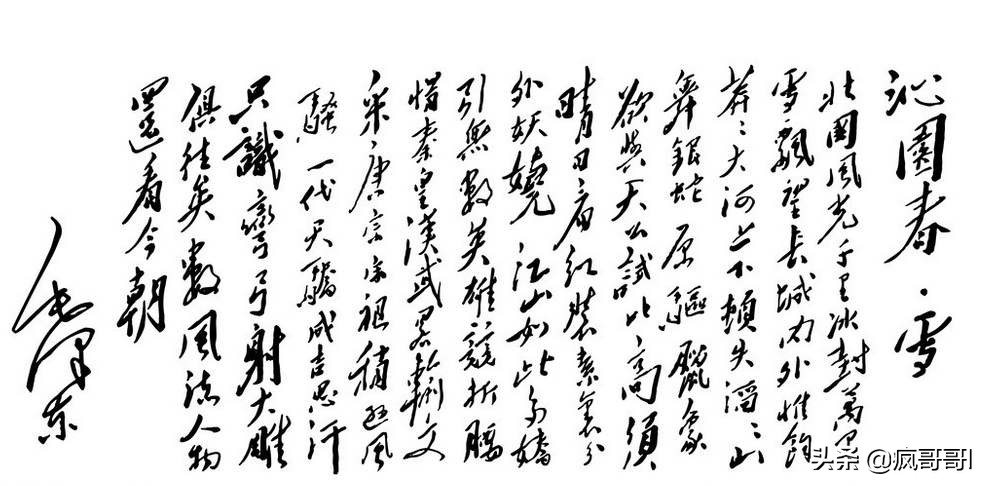 沁園春·雪
北國風光千里冰封萬里
雪飄望長城內外惟餘
莽〻大河上下頓失滔〻山
舞銀蛇原驅臘象
欲與天公試比高須
晴日看紅裝素裹分
外妖嬈江山如此多嬌
引無數英雄競折腰
惜秦皇漢武略輸文
采唐宗宋祖稍遜風
騷一代天驕成吉思汗
只識彎弓射大雕
俱往矣數風流人物
還看今朝
毛澤東
头条 @疯哥哥l